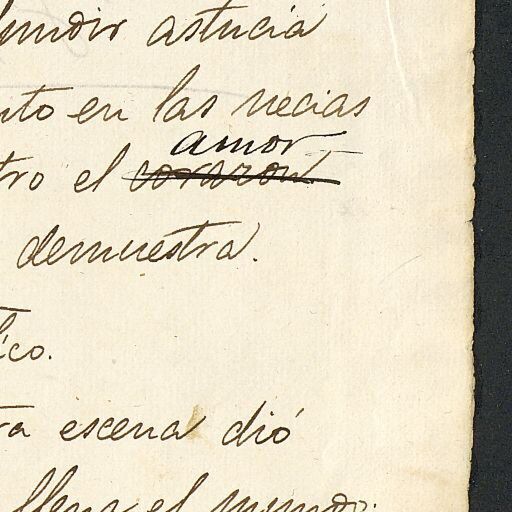 fundir astucia
nto en las necias
amor
tro el corazon
demuestra.
ico.
ra escena dió
llena el mundo.